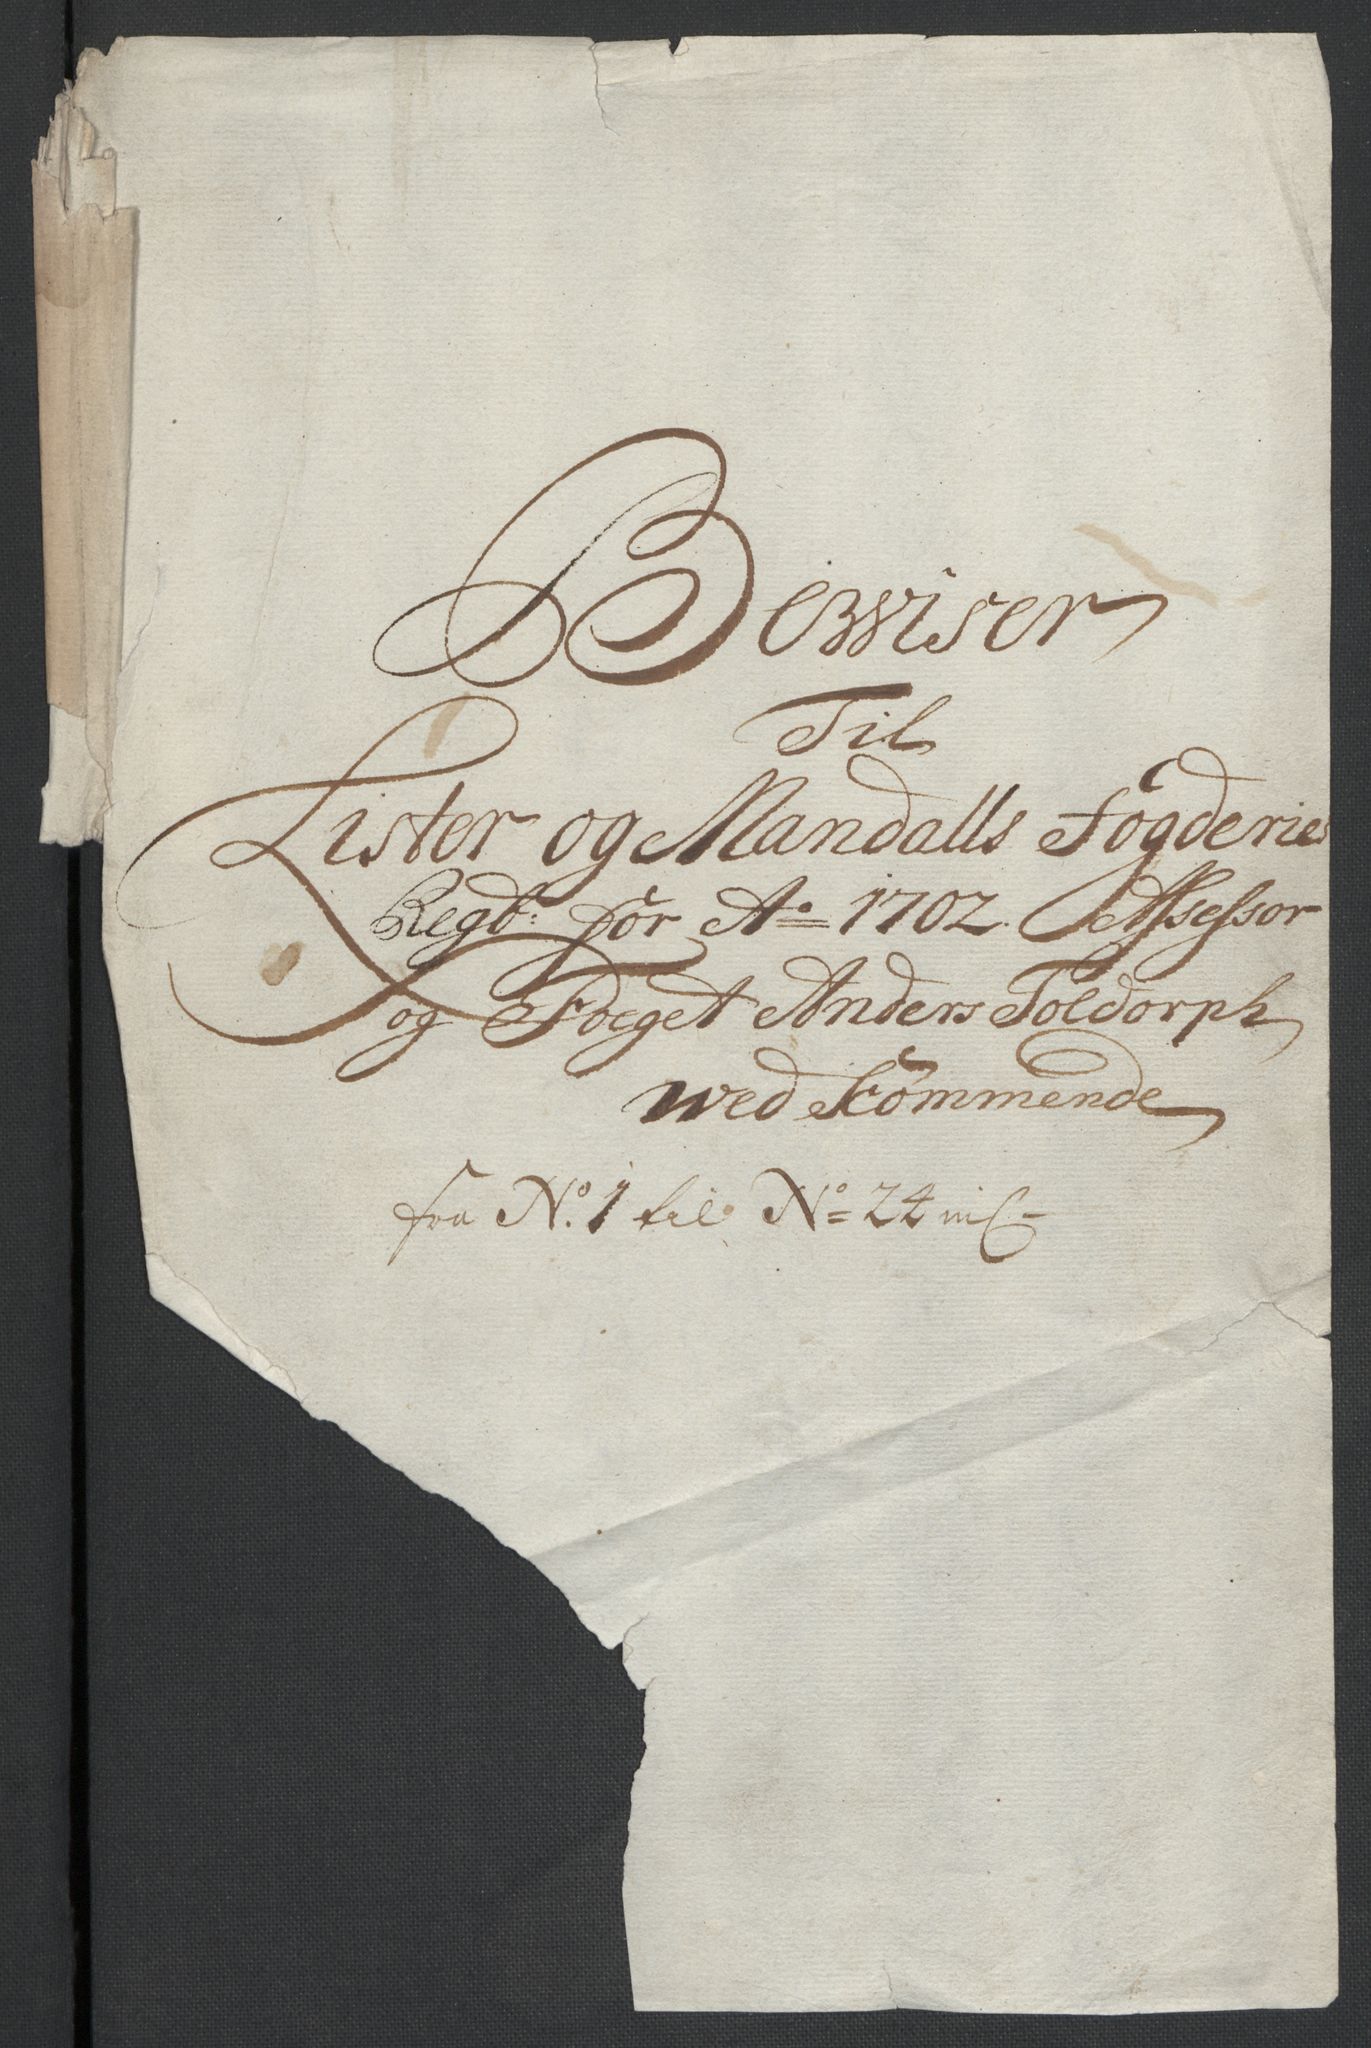 Bewiser
Til
Lister og Mandalls fogderies
Regb: for Ao 1702. Assessor
og Foeget Anders Toldorph
wed Kommende
fra No. 1 til No 24 incl